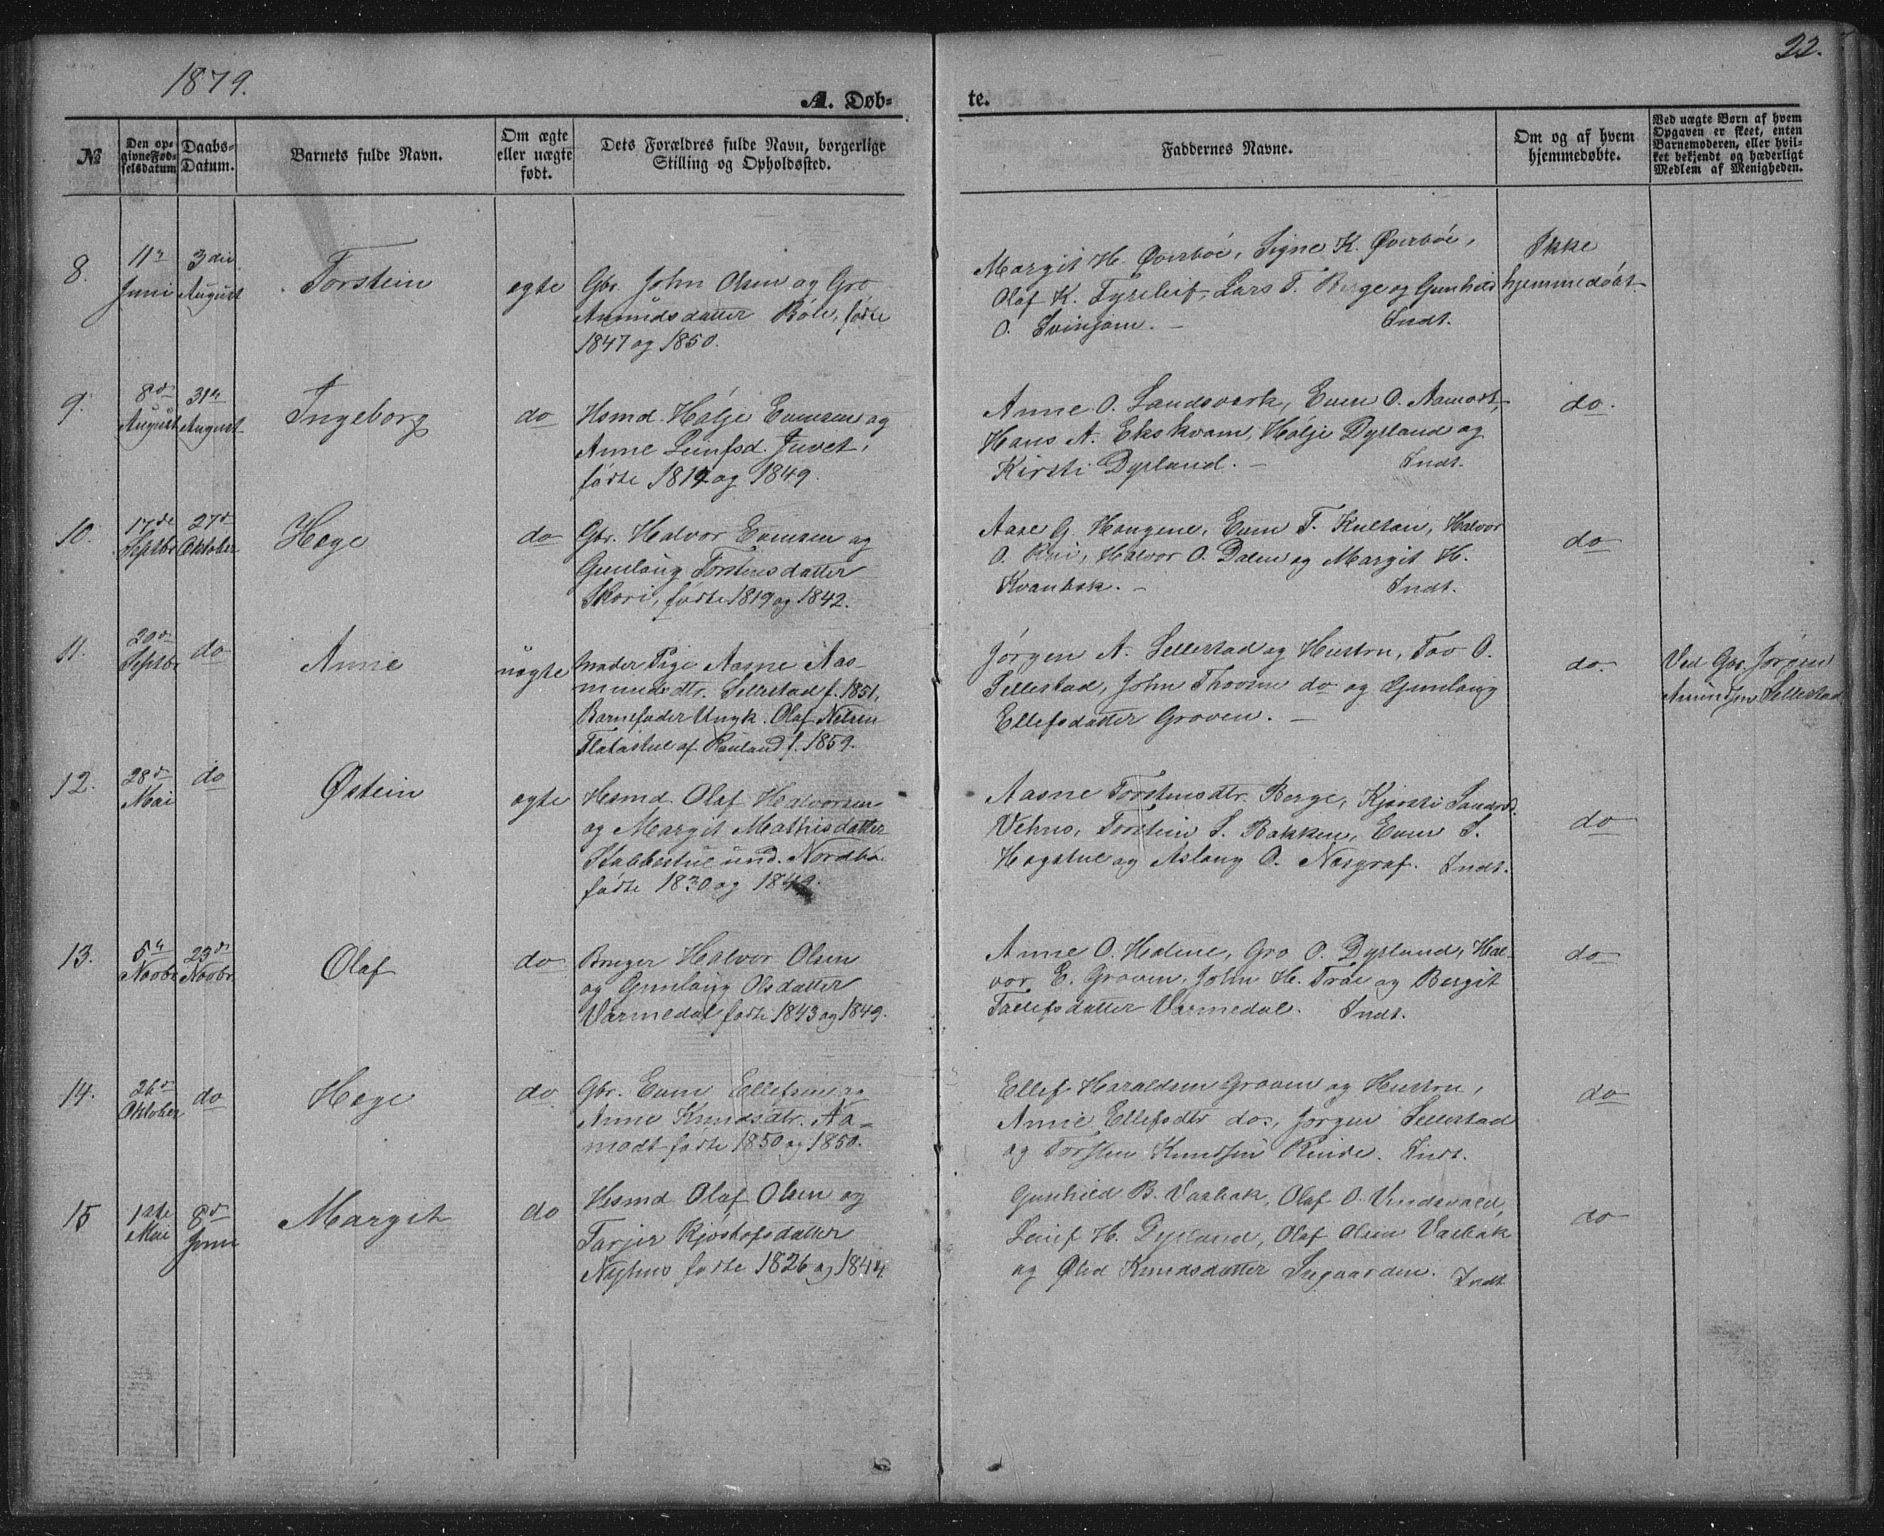 1879.
22.
A. Døb-
te.
№
Den op-
givne Fød-
selsdatum
Daabs-
Datum.
Barnets fulde Navn.
Om ægte
eller uægte
født.
Dets Forældres fulde Navn, borgerlige
Stilling og Opholdssted.
Faddernes Navne.
Om og af hvem
hjemmedøbte.
Ved uægte Børn af hvem
Opgaven er skeet, enten
Barnemoderen, eller hvil-
ket bekjendt og hæderligt
Medlem af Menigheden.
8.
11te
Juni
3die
August
Torstein
ægte
Gbr. John Olsen og Gro
Amundsdatter Bøle, fødte
1847 og 1850.
Margit H. Øverbøe, Signe K. Øverbøe,
Olaf K. Tyreleif, Lars T. Berge og Gunhild
O. Svinjom. — Indt.
Ikke
hjemmedøbt
9.
8de
August
31te
August
Ingeborg
do
Hsmd. Hølje Evensen og
Anne Leifsd. Juvet,
fødte 1819 og 1849.
Anne O. Landsverk, Even O. Aamodt,
Hans A. Ekskvam, Hølje Dyrland og
Kirsti Dyrland. — Indt.
do.
10.
17de
Septbr
27de
Oktober
Hæge
do
Gbr. Halvor Evensen og
Gunlaug Torstensdatter
Skori, fødte 1819 og 1842.
Aase G. Haugene, Even T. Kultan, Halvor
O. Rui, Halvor O. Dalen og Margit H.
Kvanbæk. — Indt.
do
11.
20de
Septbr
do
Anne
uægte
moder Pige Aasne Aas-
mundsdtr. Sellestad f. 1851,
Barnefader Ungk. Olaf Nilsen
Flatastul af Rauland f. 1859.
Jørgen A. Sellestad og Hustru, Tov O.
Sellestad, John Thovsen do og Gunlaug
Ellefsdatter Groven. —
do.
Ved Gbr. Jørgen
Amundsen Sellestad
12.
28de
Mai
do
Østein
ægte
Hsmd. Olaf Halvorsen
og Margit Mathisdatter
Stabbestul und. Nordbø
fødte 1830 og 1849.
Aasne Torstensdtr. Berge, Kjersti Sandsd.
Vehus, Torstein S. Bakken, Even S.
Hagstul og Aslaug O. Næsgraf. Indt.
do
13.
5te
Novbr
23de
Novbr.
Olaf
do
Bruger Halvor Olsen
og Gunlaug Olsdatter
Varmedal fødte 1843 og 1849.
Anne O. Holene, Gro O. Dyrland, Hal-
vor E. Groven, John H. Traæ og Bergit
Tallefsdatter Varmedal. Indt.
do
14.
26de
Oktober
do
Hæge
do
Gbr. Even Ellefsen og
Anne Knudsdtr. Aa-
modt fødte 1850 og 1850.
Ellef Haraldsen Groven og Hustru,
Anne Ellefsdtr do., Jørgen Sellestad
og Torsten Knudsen Rinde. Indt.
do
15
1ste
Mai
8de
Juni
Margit
do
Hsmd Olaf Olsen og
Tarjer Kjøstofsdatter
Nyhus fødte 1826 og 1844.
Gunhild B. Vasbæk, Olaf O. Vindsvald,
Leif H. Dyrland, Olaf Olsen Vasbæk
og Ølid Knudsdatter Sygaarden. Indt
do